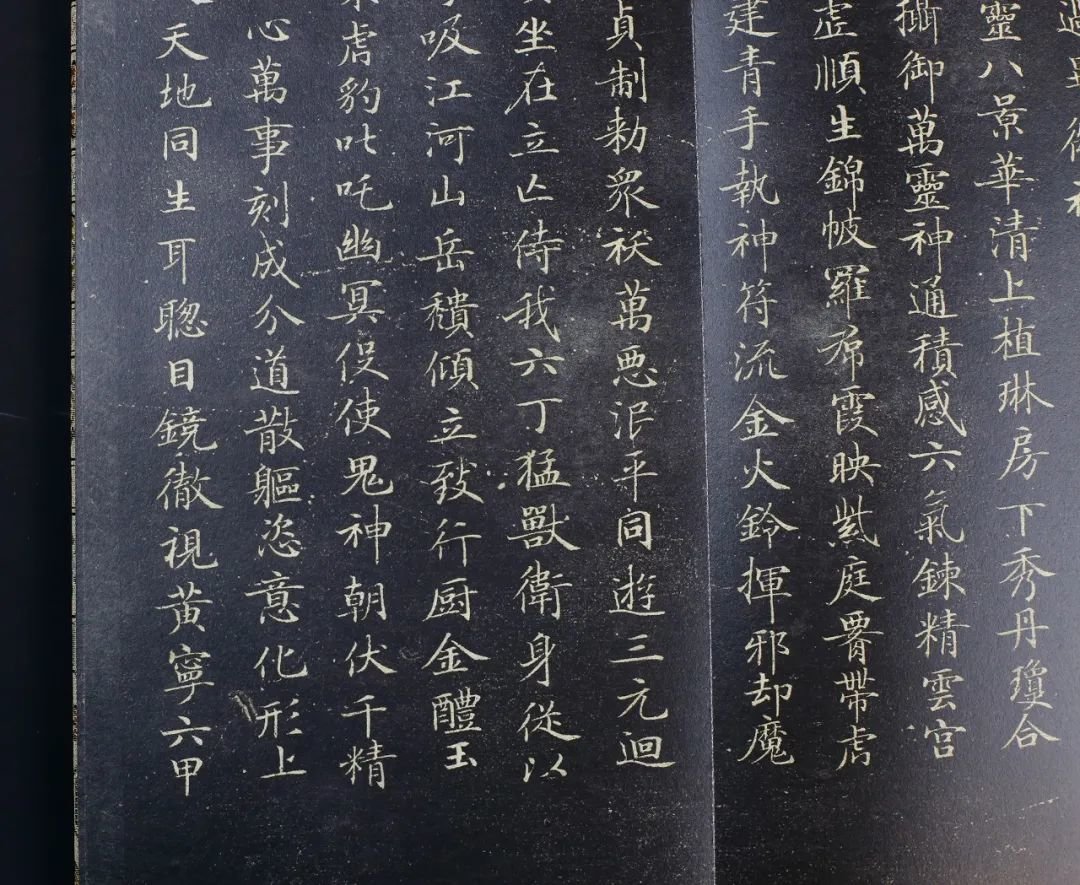 過畢
靈八景華清上植琳房下秀丹瓊合
攝御萬靈神通積感六氣鍊精雲宮
虛順生錦帔羅帬霞映紫庭腰帶虎
建青手執神符流金火鈴揮邪却魔
貞制勑衆祅萬惡泯平同遊三元迴
坐在立亡侍我六丁猛獸衛身從以
吸江河山岳穨傾立致行厨金醴玉
虎豹叱吒幽冥役使鬼神朝伏千精
心萬事刻成分道散軀恣意化形上
天地同生耳聰目鏡徹視黃寧六甲